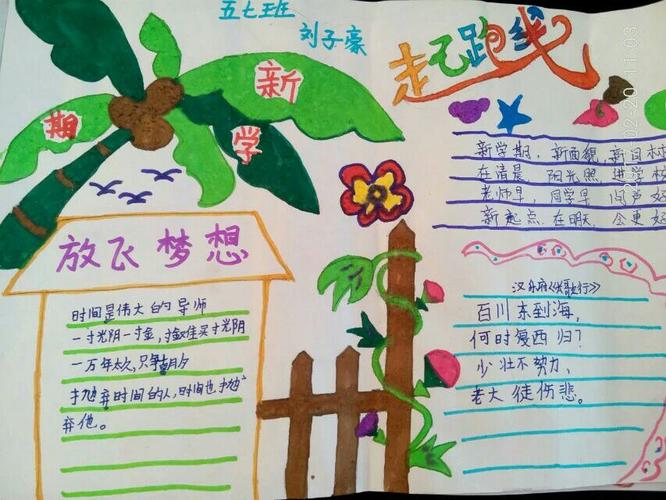 五七班
刘子豪
新
学
期
走己跑线
放飞梦想
时间是伟大的导师
一寸光阴一寸金，寸金难买寸光阴
一万年太久，只争朝夕
抛弃时间的人，时间也抛
弃他。
新学期，新面貌，新目标
在清晨，阳光照，进学校
老师早，同学早，问声好
新起点，在明天，会更好
汉乐府《长歌行》
百川东到海，
何时复西归？
少壮不努力，
老大徒伤悲。